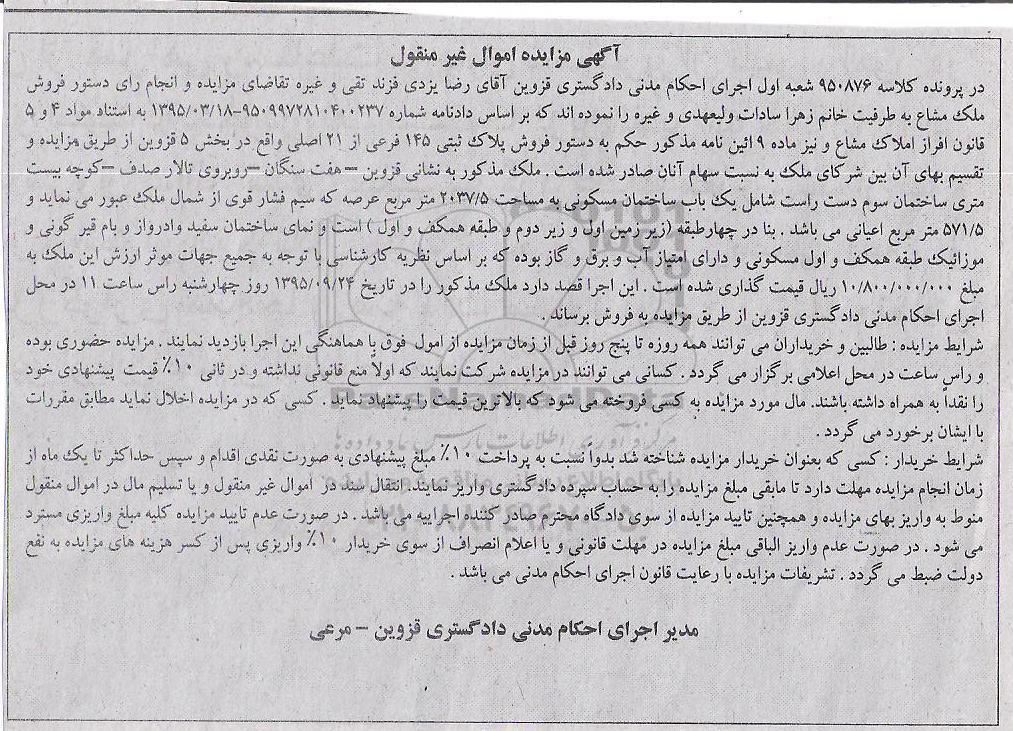 آگهی مزایده اموال غیر منقول
در پرونده کلاسه ۹۵۰۸۷۶ شعبه اول اجرای احکام مدنی دادگستری قزوین آقای رضا یزدی فزند تقی و غیره تقاضای مزایده و انجام رای دستور فروش
ملک مشاع به طرفیت خانم زهرا سادات ولیعهدی و غیره را نموده اند که بر اساس دادنامه شماره ۹۵۰۹۹۷۲۸۱۰۴۰۰۲۳۷–۱۳۹۵/۰۳/۱۸ به استناد مواد ۴ و ۵
قانون افراز املاک مشاع و نیز ماده ۹ ائین نامه مذکور حکم به دستور فروش پلاک ثبتی ۱۴۵ فرعی از ۲۱ اصلی واقع در بخش ۵ قزوین از طریق مزایده و
تقسیم بهای آن بین شرکای ملک به نسبت سهام آنان صادر شده است . ملک مذکور به نشانی قزوین – هفت سنگان –روبروی تالار صدف –کوچه بیست
متری ساختمان سوم دست راست شامل یک باب ساختمان مسکونی به مساحت ۲۰۳۷/۵ متر مربع عرصه که سیم فشار قوی از شمال ملک عبور می نماید و
۵۷۱/۵ متر مربع اعیانی می باشد . بنا در چهارطبقه (زیر زمین اول و زیر دوم و طبقه همکف و اول ) است و نمای ساختمان سفید وادرواز و بام قیر گونی و
موزائیک طبقه همکف و اول مسکونی و دارای امتیاز آب و برق و گاز بوده که بر اساس نظریه کارشناسی با توجه به جمیع جهات موثر ارزش این ملک به
مبلغ ۱۰/۸۰۰/۰۰۰/۰۰۰ ریال قیمت گذاری شده است . این اجرا قصد دارد ملک مذکور را در تاریخ ۱۳۹۵/۰۹/۲۴ روز چهارشنبه راس ساعت ۱۱ در محل
اجرای احکام مدنی دادگستری قزوین از طریق مزایده به فروش برساند .
شرایط مزایده : طالبین و خریداران می توانند همه روزه تا پنج روز قبل از زمان مزایده از امول فوق با هماهنگی این اجرا بازدید نمایند . مزایده حضوری بوده
و راس ساعت در محل اعلامی برگزار می گردد . کسانی می توانند در مزایده شرکت نمایند که اولاً منع قانونی نداشته و در ثانی ۱۰٪ قیمت پیشنهادی خود
را نقداً به همراه داشته باشند. مال مورد مزایده به کسی فروخته می شود که بالاترین قیمت را پیشنهاد نماید . کسی که در مزایده اخلال نماید مطابق مقررات
با ایشان برخورد می گردد .
شرایط خریدار : کسی که بعنوان خریدار مزایده شناخته شد بدواً نسبت به پرداخت ۱۰٪ مبلغ پیشنهادی به صورت نقدی اقدام و سپس حداکثر تا یک ماه از
زمان انجام مزایده مهلت دارد تا مابقی مبلغ مزایده را به حساب سپرده دادگستری واریز نمایند. انتقال سند در اموال غیر منقول و یا تسلیم مال در اموال منقول
منوط به واریز بهای مزایده و همچنین تایید مزایده از سوی دادگاه محترم صادر کننده اجراییه می باشد . در صورت عدم تایید مزایده کلیه مبلغ واریزی مسترد
می شود . در صورت عدم واریز الباقی مبلغ مزایده در مهلت قانونی و یا اعلام انصراف از سوی خریدار ۱۰٪ واریزی پس از کسر هزینه های مزایده به نفع
دولت ضبط می گردد . تشریفات مزایده با رعایت قانون اجرای احکام مدنی می باشد .
مدیر اجرای احکام مدنی دادگستری قزوین – مرعی